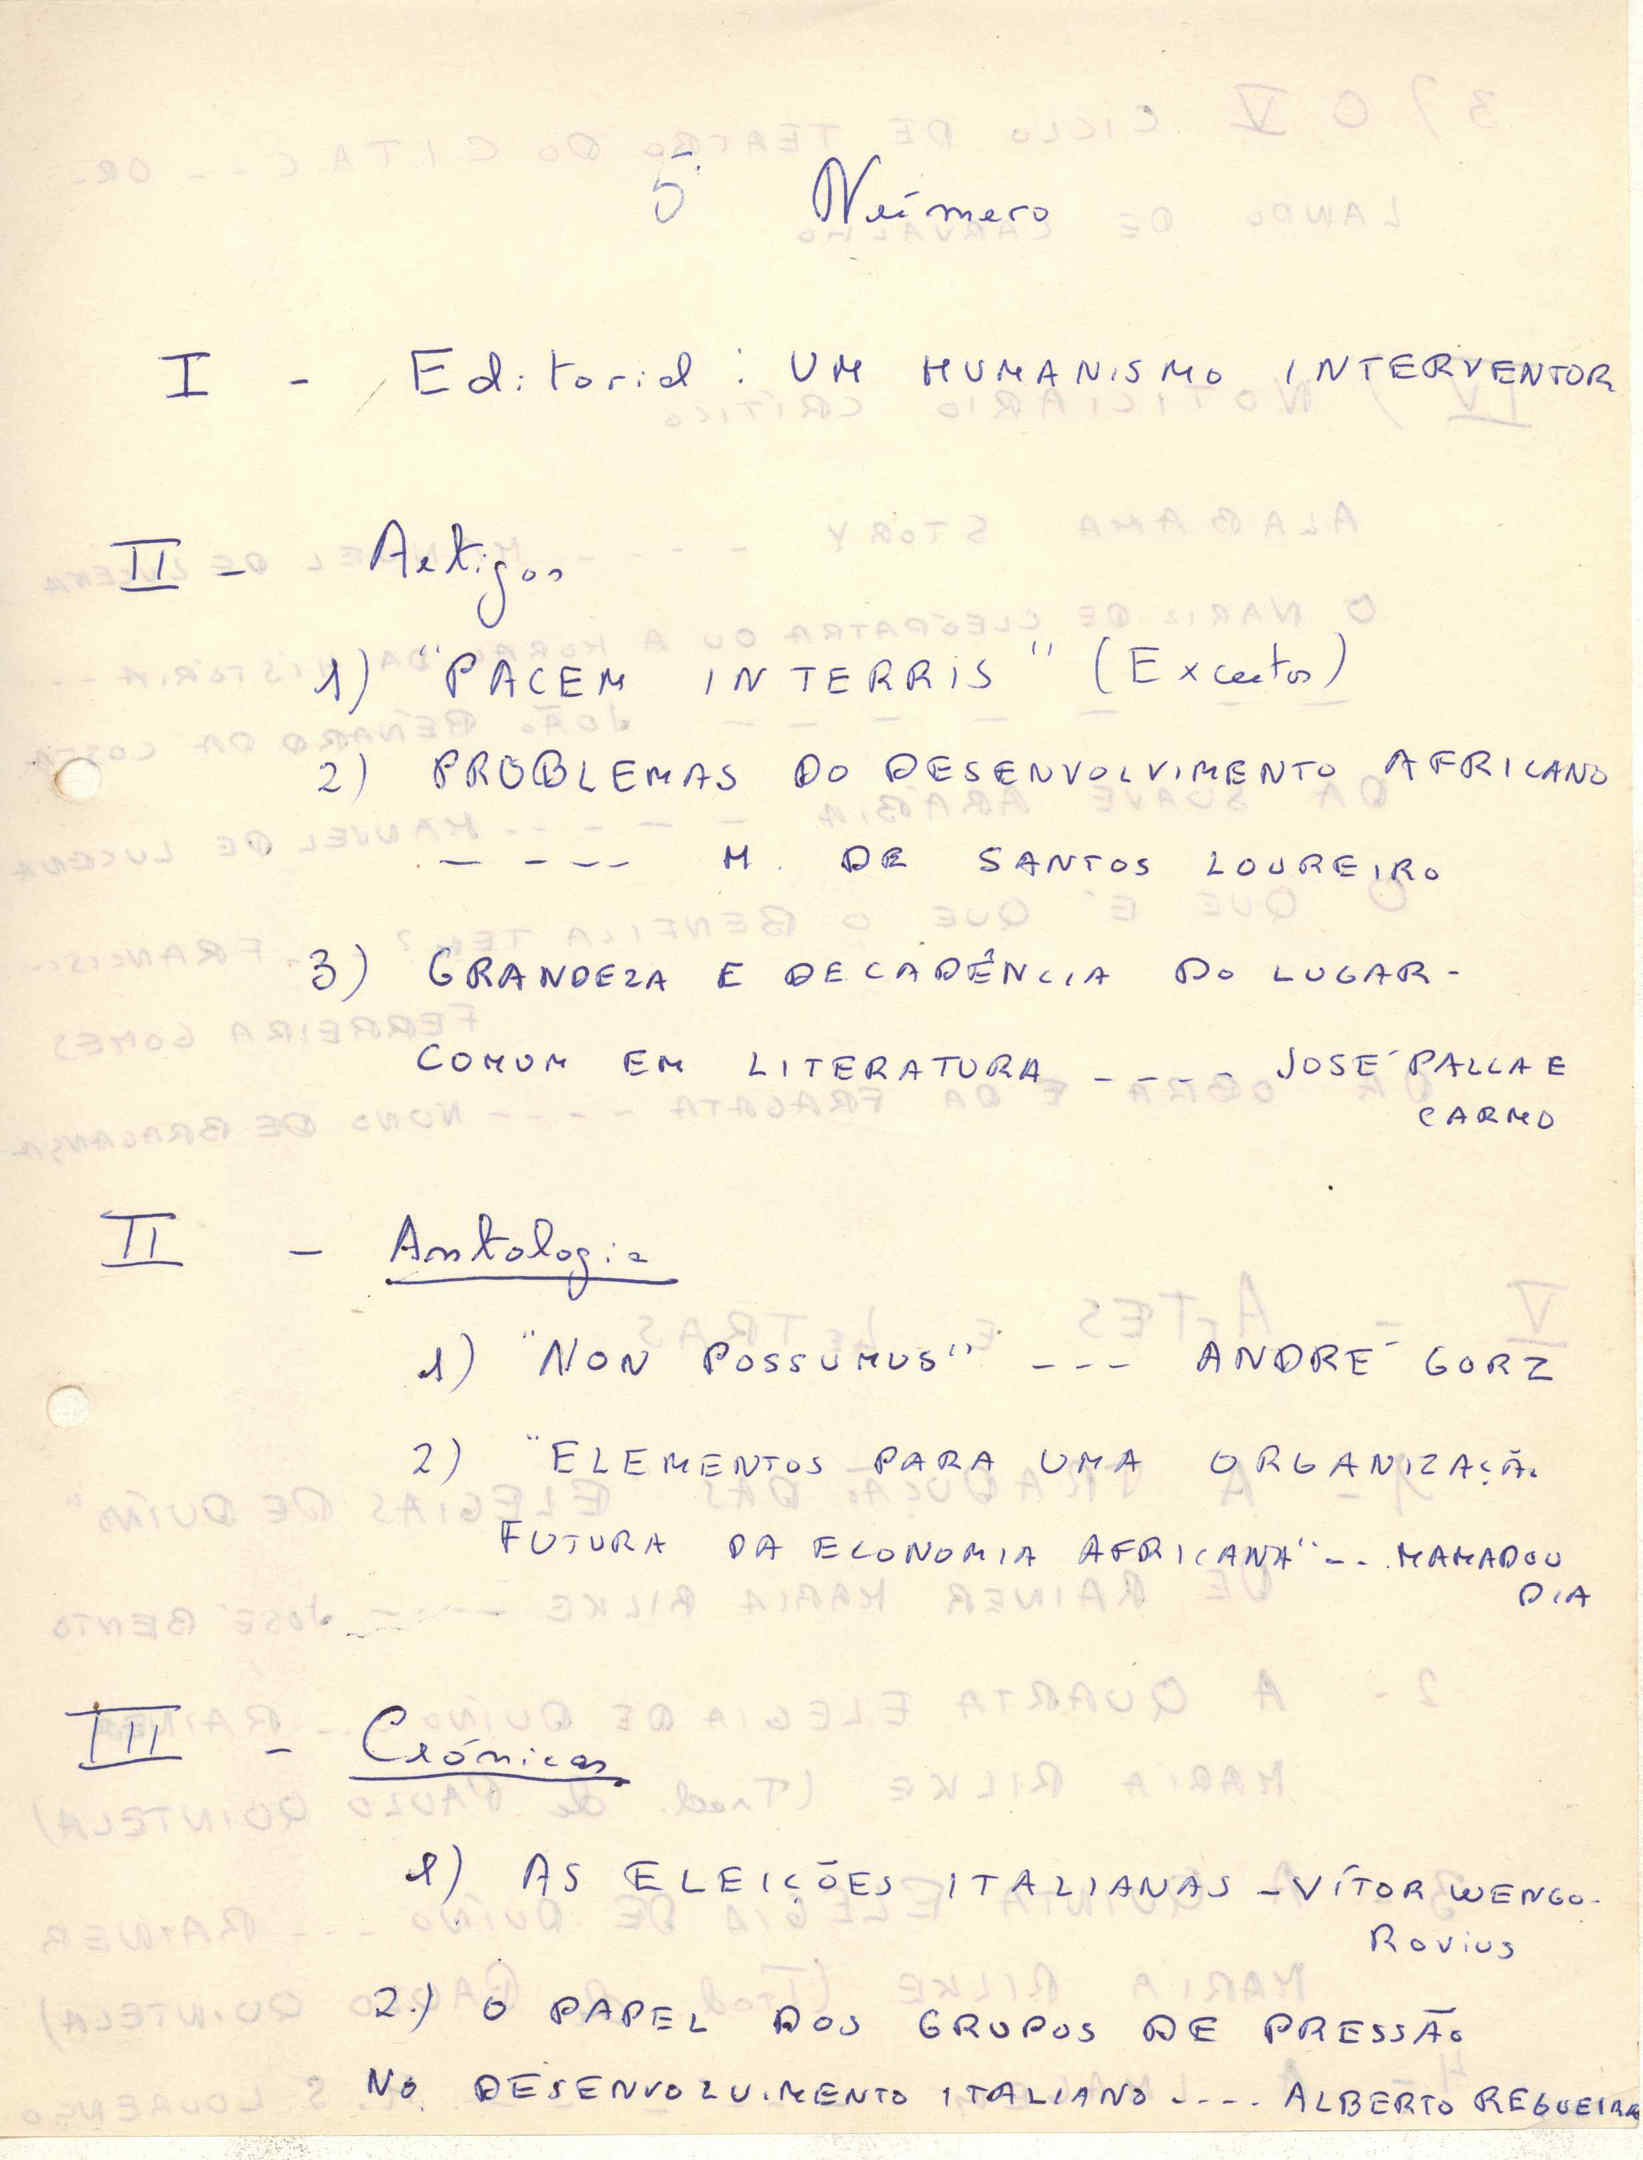 5º Número
I - Editorial : UM HUMANISMO INTERVENTOR
II - Artigos
1) "PACEM IN TERRIS" (Excertos)
2) PROBLEMAS DO DESENVOLVIMENTO AFRICANO
- - - - M. DE SANTOS LOUREIRO
3) GRANDEZA E DECADÊNCIA DO LUGAR-
COMUM EM LITERATURA - - - - JOSÉ PALLA E
CARMO
II - Antologia
1) "NON POSSUMUS" - - - ANDRÉ GORZ
2) "ELEMENTOS PARA UMA ORGANIZAÇÃO
FUTURA DA ECONOMIA AFRICANA" - - . MAMADOU
DIA
III - Crónicas
1) AS ELEIÇÕES ITALIANAS - VÍTOR WENGO-
ROVIUS
2.) O PAPEL DOS GRUPOS DE PRESSÃO
NO DESENVOLVIMENTO ITALIANO - - - - ALBERTO REGUEIRA